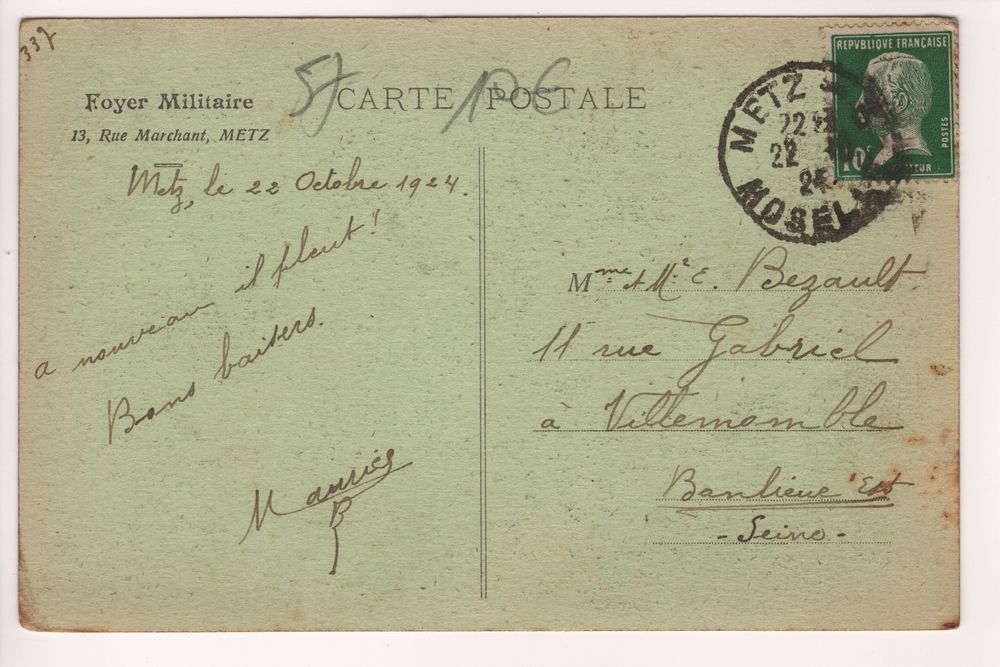 337
57
106
CARTE POSTALE
Foyer Militaire
13, Rue Marchant, METZ
Metz, le 22 Octobre 1924.
a nouveau il pleut !
Bons baisers.
Maurice
B
REPVBLIQUE FRANÇAISE
POSTES
10c
METZ
22
22
24
MOSELLE
Mme et Mr E. Bezault
11 rue Gabriel
à Villemomble
Banlieue Est
- Seine -